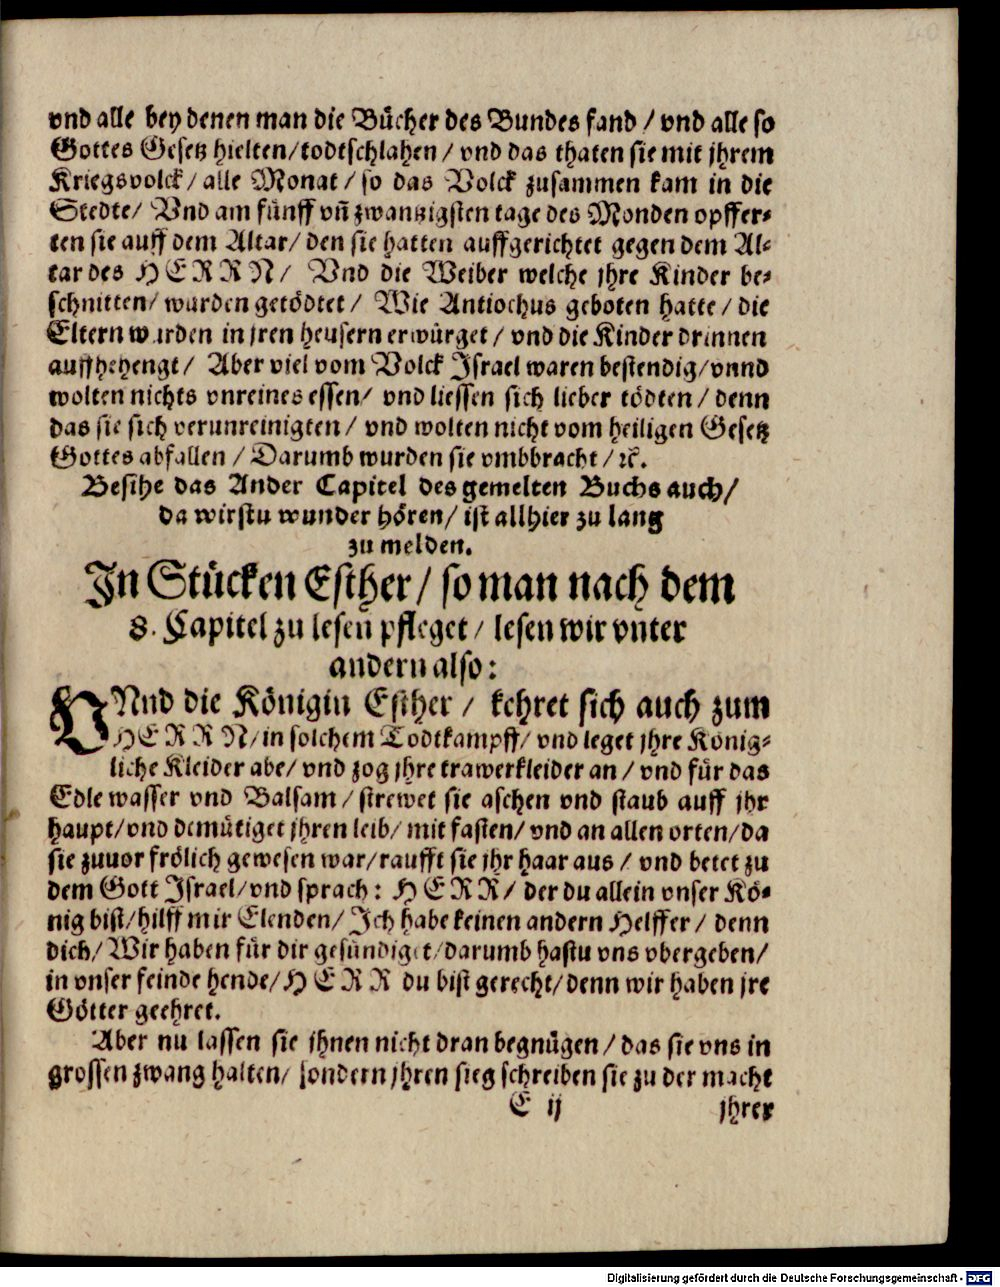 vnd alle bey denen man die Bücher des Bundes fand / vnd alle so
Gottes Gesetz hielten/todtschlahen / vnd das thaten sie mit jhrem
Kriegsvolck / alle Monat / so das Volck zusammen kam in die
Stedte/ Vnd am fünff vñ zwantzigsten tage des Monden opffer-
ten sie auff dem Altar/ den sie hatten auffgerichtet gegen dem Al-
tar des HERRN/ Vnd die Weiber welche jhre Kinder be-
schnitten/ wurden getödtet / Wie Antiochus geboten hatte / die
Eltern wurden in jren heusern erwürget / vnd die Kinder drinnen
auffgehengt / Aber viel vom Volck Israel waren bestendig/vnnd
wolten nichts vnreines essen/ vnd liessen sich lieber tödten / denn
das sie sich verunreinigten / vnd wolten nicht vom heiligen Gesetz
Gottes abfallen / Darumb wurden sie vmbbracht / ꝛc.
Besihe das Ander Capitel des gemelten Buchs auch/
da wirstu wunder hören/ ist allhier zu lang
zu melden.
In Stücken Esther / so man nach dem
8. Capitel zu lesen pfleget / lesen wir vnter
andern also:
VNnd die Königin Esther / kehret sich auch zum
HERRN/in solchem Todtkampff/ vnd leget jhre König-
liche Kleider abe/ vnd zog jhre trawerkleider an / vnd für das
Edle wasser vnd Balsam / strewet sie aschen vnd staub auff jhr
haupt/vnd demütiget jhren leib/ mit fasten/ vnd an allen orten/da
sie zuuor frölich gewesen war/raufft sie jhr haar aus / vnd betet zu
dem Gott Israel/vnd sprach: HERR/ der du allein vnser Kö-
nig bist/hilff mir Elenden/ Ich habe keinen andern Helffer / denn
dich/ Wir haben für dir gesündiget/darumb hastu vns vbergeben/
in vnser feinde hende/HERR du bist gerecht/denn wir haben jre
Götter geehret.
Aber nu lassen sie jhnen nicht dran begnügen / das sie vns in
grossen zwang halten/ sondern jhren sieg schreiben sie zu der macht
E ij jhrer
Digitalisierung gefördert durch die Deutsche Forschungsgemeinschaft - DFG